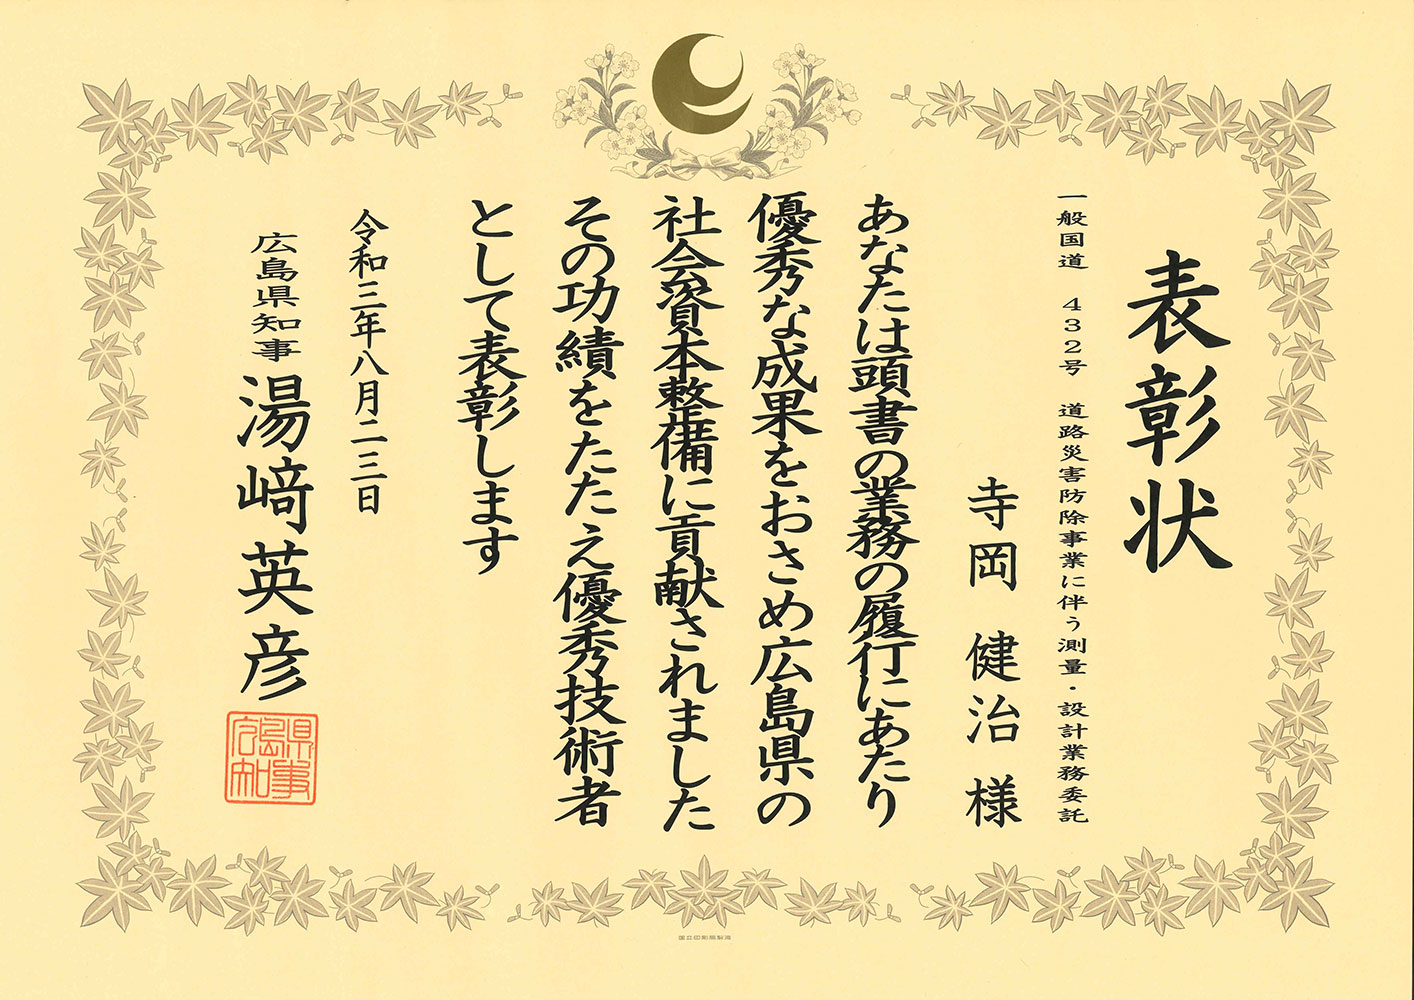 表彰状
一般国道 432号 道路災害防除事業に伴う測量・設計業務委託
寺岡 健治 様
あなたは頭書の業務の履行にあたり
優秀な成果をおさめ広島県の
社会資本整備に貢献されました
その功績をたたえ優秀技術者
として表彰します
令和三年八月二三日
広島県知事 湯﨑英彦
広島県知事
国立印刷局製造